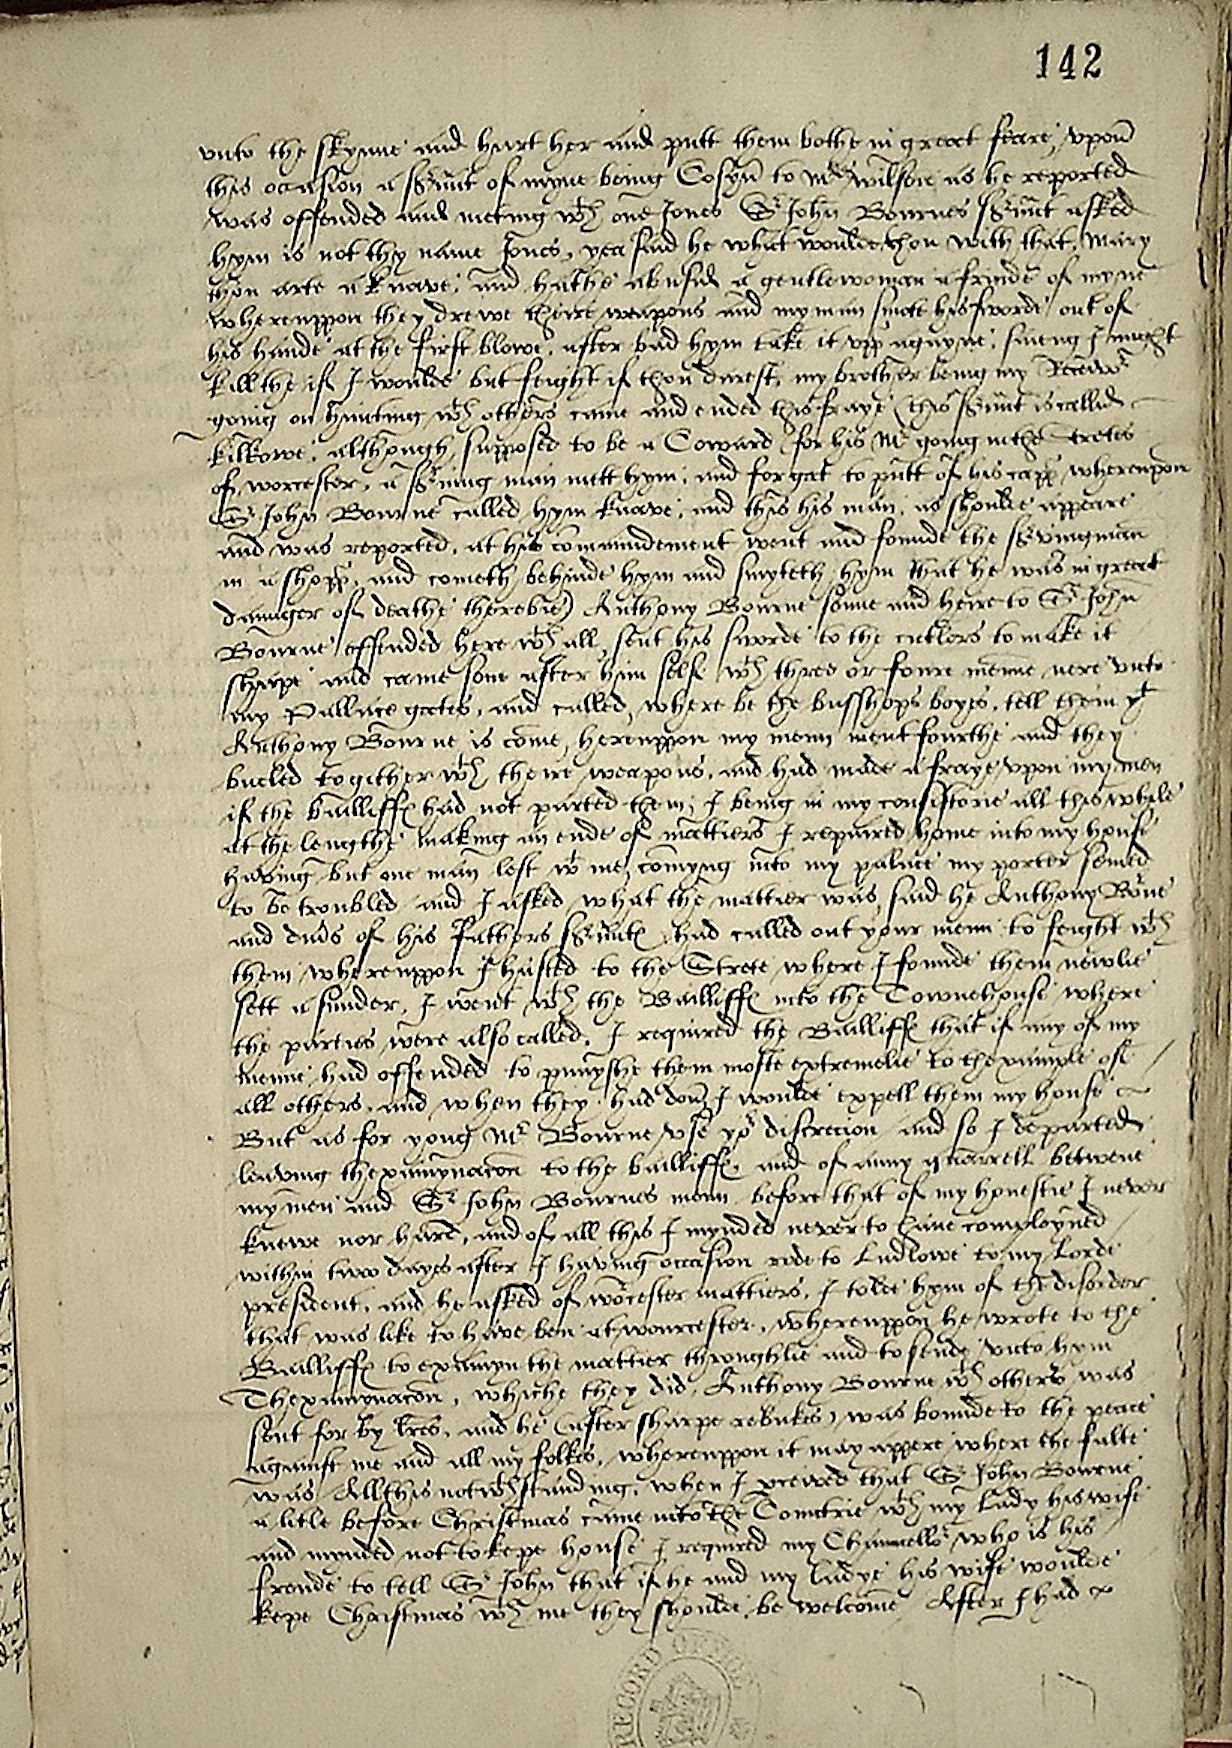 142
vnto the skynne and hurt her and putt them bothe in great feare, vpon
this occasion a s'uant of myne being Cosyn to Mrs wilson as he reported
was offended and meting wth one Jones Sr John Bournes s'uant asked
hym is not thy name Jones, yea said he what wouldest thou with that, Mary
thou arte a knave, and hathe abused a gentlewoman a frynde of myne
wherevppon they drewe theire weapons and my man smote his sworde out of
his hande at the first blowe, after bad hym take it vpp agayne, saieng I might
kill the if I woulde but feight if thou durest, my brother being my Receivor
going on hunting wth others came and ended this fraye (this s'uant is called
kilkowe, althoughe supposed to be a Coward, for his Mr going in the stretes
of worcester, a s'uing man mett hym, and forgat to putt of his capp, wherevpon
Sr John Bourne called hym knave, and this his man, as shoulde appeare
and was reported, at his commandement went and founde the s'vingman
in a shopp, and cometh behinde hym and smyteth hym that he was in great
daunger of deathe therebie) Anthony Bourne sonne and heire to Sr John
Bourne offended here wth all, sent his sworde to the cutlers to make it
sharpe and came sone after him self wth three or foure menne nere vnto
my Pallace gates, and called, where be the busshops boyes, tell them yt
Anthony Bourne is come, herevppon my menn went fourthe and they
bucled togither wth theire weapons, and had made a fraye vpon my men
if the bailliffs had not parted them, I being in my consistorie all this while
at the lengthe making an ende of mattiers I repaired home into my house
having but one man left wt me, comyng into my palace my porter semed
to be troubled and I asked what the mattier was, said he Anthony Borne
and dyvers of his fathers s'uants had called out your menn to feight wth
them wherevppon I hasted to the Strete where I founde them newlie
sett a sunder, I went wth the Bailliffs into the Townehouse where
the parties were also called, I required the Bailliffs that if any of my
menne had offended to punyshe them moste extremelie to thexample of
all others, and when they had don I woulde expell them my house
But as for yong Mr Bourne vse yor discrecion and so I departed
leaving thexamynacon to the bailliffs, and of anny quarrell betwene
my men and Sr John Bournes menn before that of my honestie I never
knewe nor hard, and of all this I mynded never to have complayned
within two dayes after I having occasion rode to Ludlowe to my Lorde
president, and he asked of worcester mattiers, I tolde hym of the disorder
that was like to have ben at wourcester, wherevppon he wrote to the
Bailliffs to examyn the mattier throughlie and to sende vnto hym
Thexamynacon, whiche they did, Anthony Bourne wth others was
sent for by lres, and he (after sharpe rebukes) was bounde to the peace
against me and all my folkes, wherevppon it may appere where the falte
was All this notwthstanding, when I pceived that Sr John Bourne
a litle before Christmas came into the Countrie wth my Lady his wife
and mynded not to kepe house I required my Chauncellor who is his
frende to tell Sr John that if he and my Ladye his wife woulde
kepe Christmas wth me they shoulde be welcome After I had
RECORD OFFICE